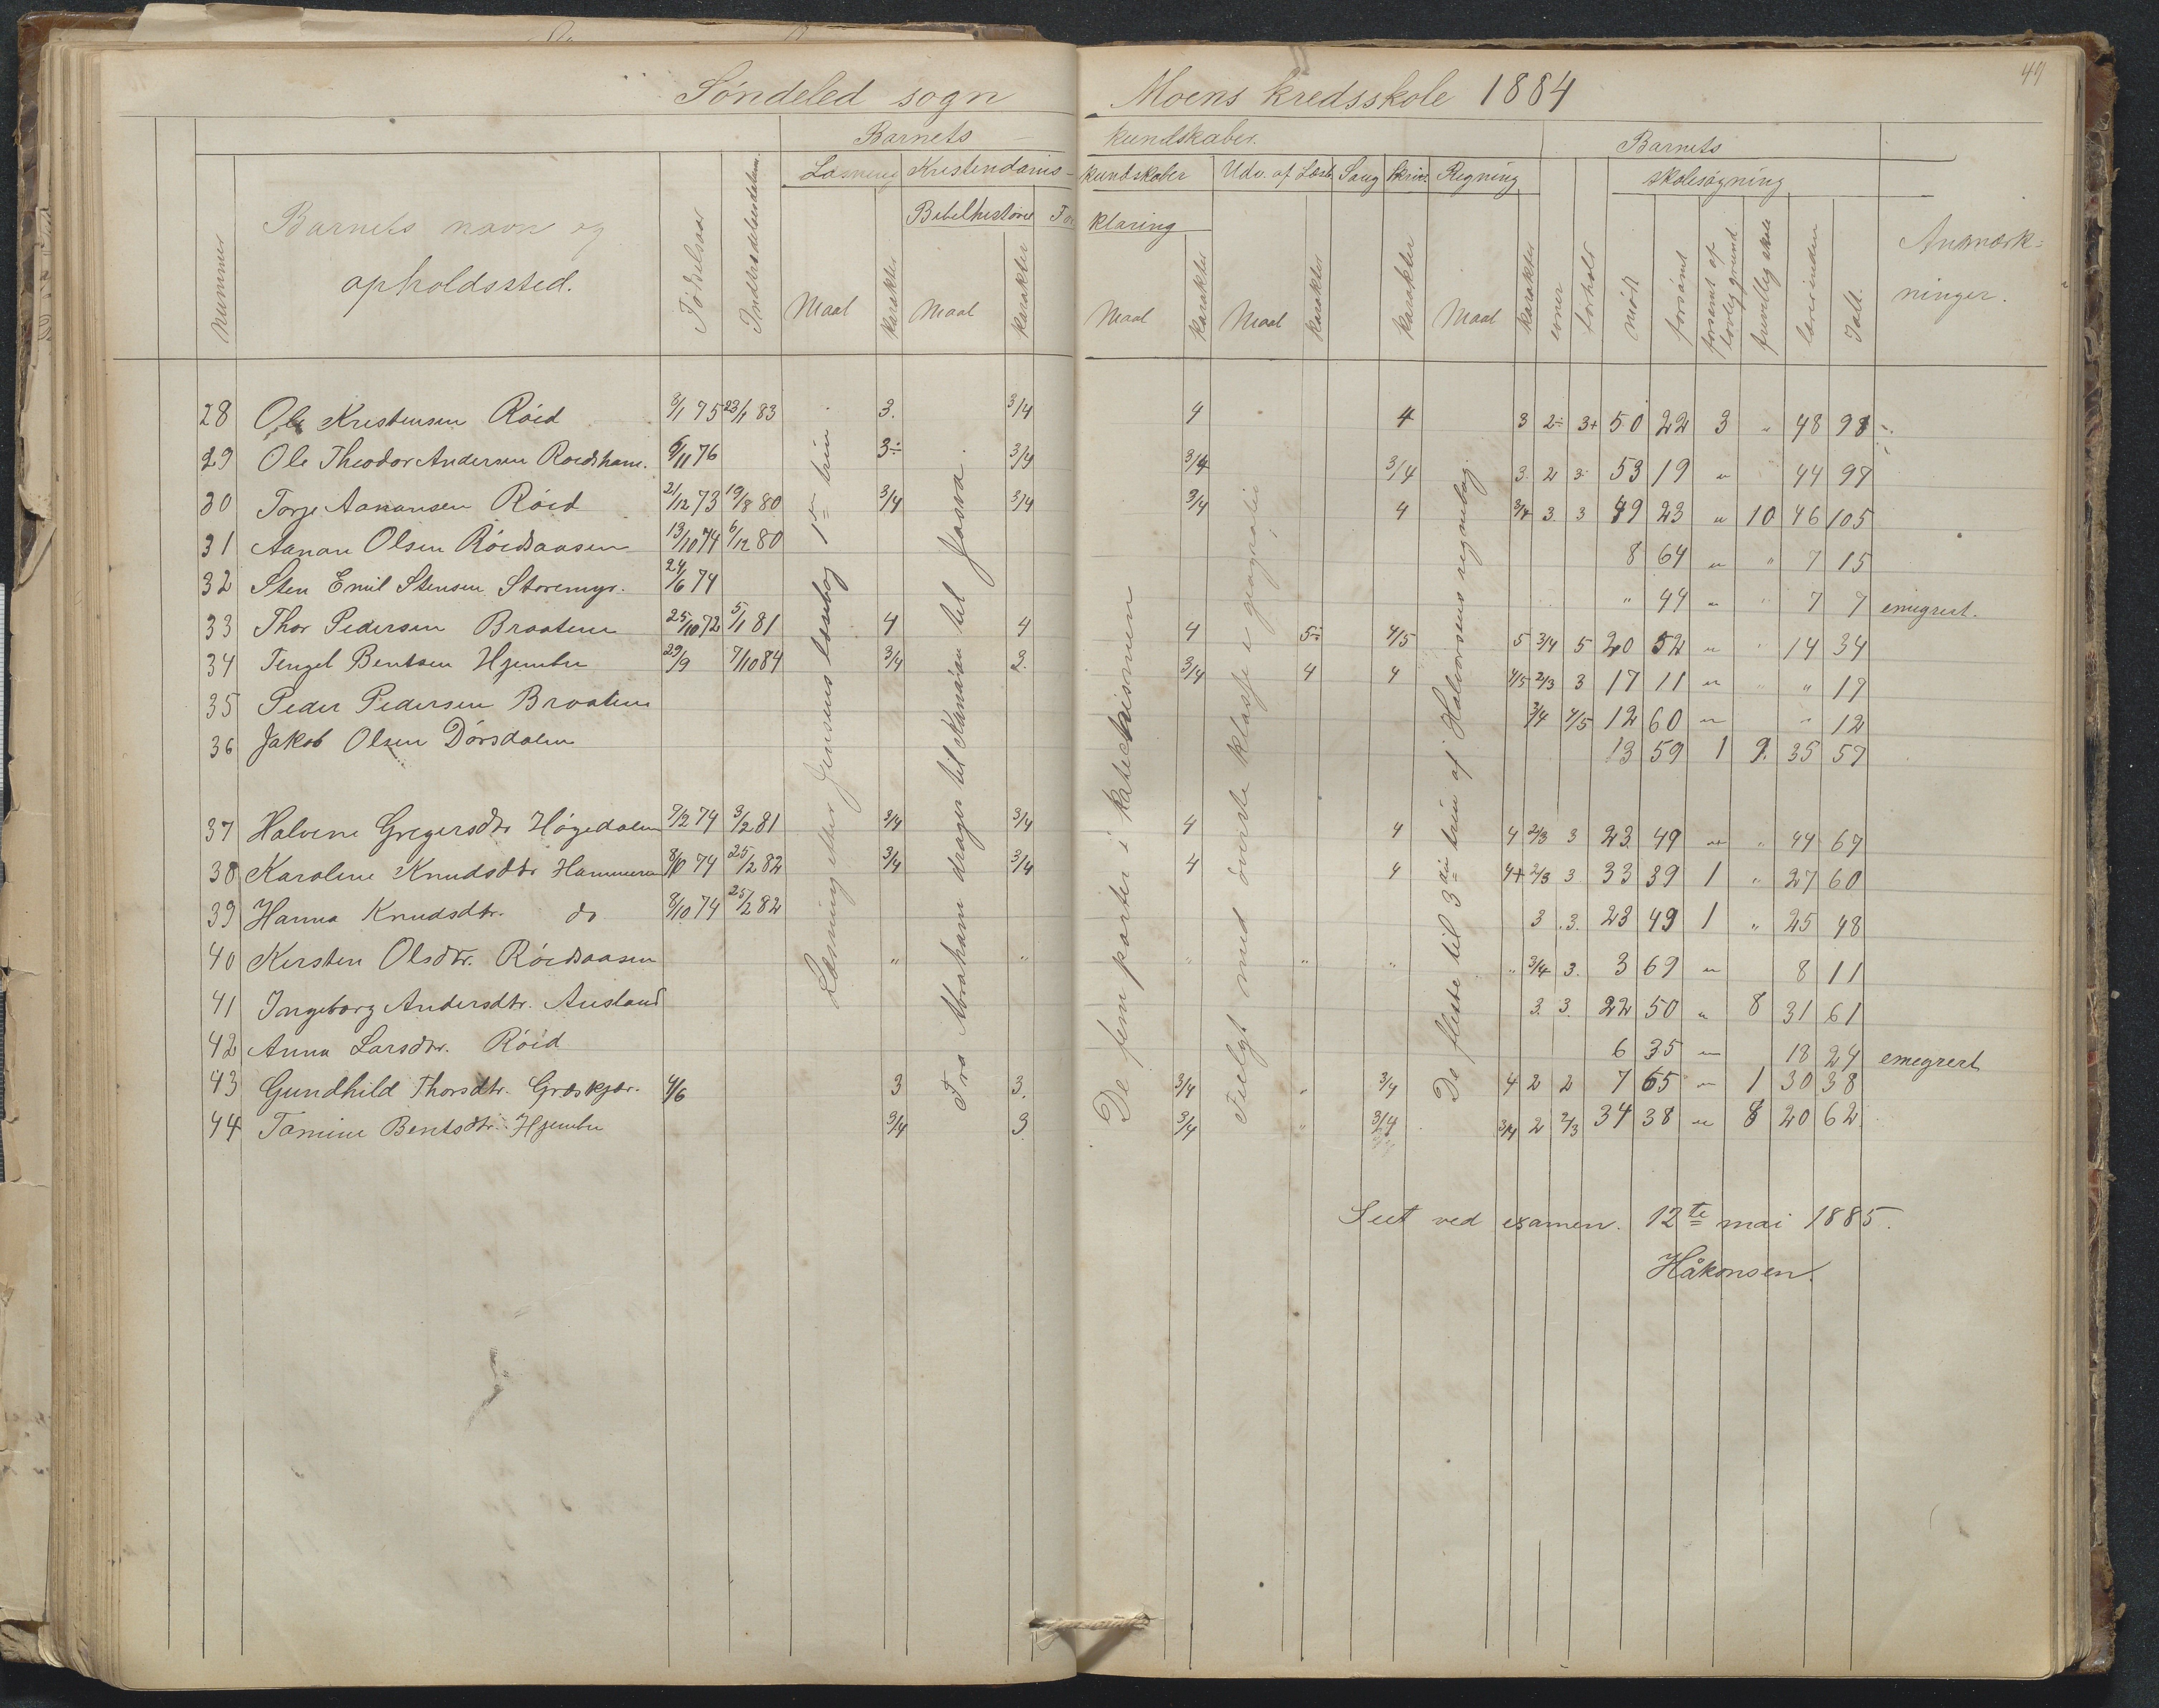 49
Søndeled sogn Moens kredsskole 1884
Barnets kundskaber. Barnets
Læsning Kristendoms- kundskaber Udv. af Læseb. Sang Skriv. Regning skolesøgning
Bibelhistorie For klaring
Nummer Barnets navn og opholdssted. Fødselsaar Indtrædelsesdatum. Maal Karakter Maal Karakter Maal Karakter Maal Karakter Karakter Maal Karakter evner forhold mødt forsømt forsømt af lovlig grund frivillig skole lærerinden Ialt. Anmærk-
ninger.
28 Ole Kristensen Røid 3/1 75 23/1 83 3. 3/4 4 4 3 2÷ 3+ 50 22 3 „ 48 98
29 Ole Theodor Andersen Roidsham. 6/11 76 3÷ 3/4 3/4 3/4 3 2 3 53 19 „ 44 97
30 Torje Aanonsen Røid 21/12 73 19/8 80 3/4 3/4 3/4 4 3/4 3 3 49 23 „ 10 46 105
31 Aanon Olsen Røidsaasen 13/10 74 6/12 80 8 64 „ „ 7 15
32 Sten Emil Stensen Storemyr. 24/6 74 „ 44 „ „ 7 7 emigrert.
33 Thor Pedersen Braaten 25/10 72 5/1 81 4 4 4 5÷ 4/5 5 3/4 5 20 52 „ „ 14 34
34 Tengel Bentsen Hjembu 29/9 7/10 84 3/4 3. 3/4 4 4 4/5 2/3 3 17 11 „ „ „ 17
35 Peder Pedersen Braaten 3/4 4/5 12 60 „ „ 12
36 Jakob Olsen Dørsdalen 13 59 1 9. 35 57
37 Halvine Gregersdtr Høgedalen 9/2 74 3/2 81 3/4 3/4 4 4 4 2/3 3 23 49 „ „ 44 67
38 Karoline Knudsdtr Hammeren 8/10 74 25/2 82 3/4 3/4 4 4 4+ 2/3 3 33 39 1 „ 27 60
39 Hanna Knudsdtr. do 8/10 74 25/2 82 3 3. 23 49 1 „ 25 48
40 Kirsten Olsdtr. Røidsaasen „ „ „ „ „ „ 3/4 3. 3 69 „ 8 11
41 Ingeborg Andersdtr. Ausland 3. 3. 22 50 „ 8 31 61
42 Anna Larsdtr. Røid 6 35 „ 18 24 emegrert
43 Gundhild Thorsdtr. Græskjær. 4/6 3 3. 3/4 „ 3/4 4 2 2 7 65 „ 1 30 38
44 Tomine Bentsdtr. Hjembu 3/4 3 3/4 „ 3/4 3/4 2 2/3 34 38 „ 8 20 62
Læsning efter Jensens læsebog 1ste trin
Fra Abraham drager til Kanaan til Josva.
De fem parter i katechismen
Fulgt med øverste klasse i geografi
De fleste til 3die trin af Halvorsens regnebog.
Seet ved examen. 12te mai 1885.
Håkonsen.